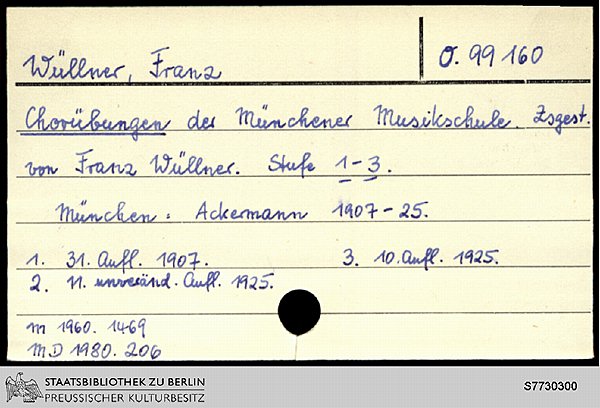 Wüllner, Franz
O. 99 160
Chorübungen der Münchener Musikschule. Zsgest.
von Franz Wüllner. Stufe 1-3.
München: Ackermann 1907-25.
1. 31. Aufl. 1907. 3. 10. Aufl. 1925.
2. 11. unveränd. Aufl. 1925.
m 1960. 1469
M.D 1980. 206
STAATSBIBLIOTHEK ZU BERLIN
PREUSSISCHER KULTURBESITZ
S7730300